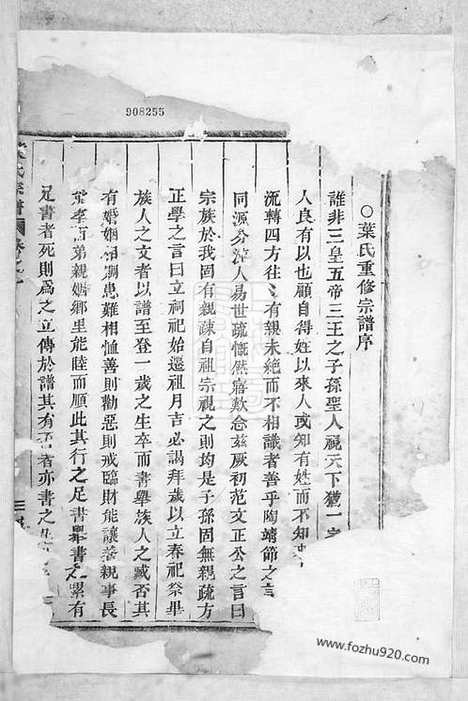 908255
○葉氏重修宗譜序
誰非三皇五帝三王之子孫聖人視天下猶一家
人良有以也顧自得姓以來人或知有姓而不知
流轉四方往往有親未絶而不相識者善乎陶靖節之言
同源分派人易世疏慨然寤歎念茲厥初范文正公之言曰
宗族於我固有親疎自祖宗視之則均是子孫固無親疏方
正學之言曰立祠祀始遷祖月吉必謁拜歲以立春祀祭畢
族人之文者以譜至登一歲之生卒而書舉族人之臧否其
有婚姻相賙患難相恤善則勸惡則戒臨財能讓養親事長
能孝而弟親姻鄉里能睦而順此其行之足書舉書之累有
足書者死則為之立傳於譜其有否者亦書之
氏宗譜 卷之一
www.fozhu920.com